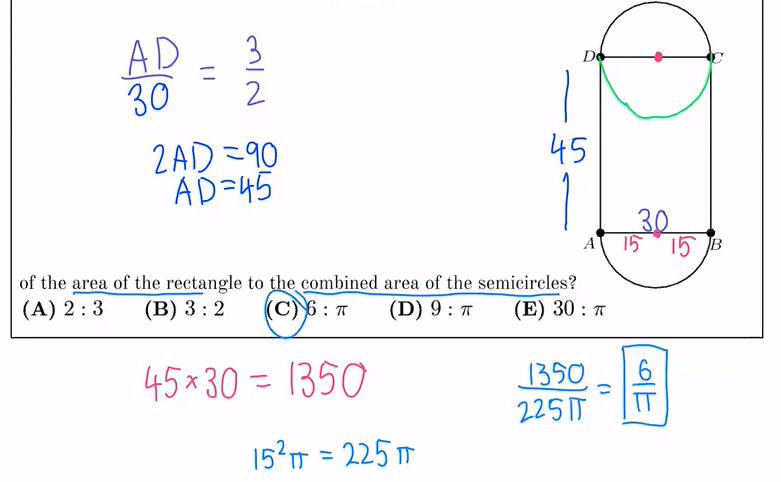 AD/30 = 3/2
2AD = 90
AD = 45
D
C
45
30
A
15
15
B
of the area of the rectangle to the combined area of the semicircles?
(A) 2 : 3 (B) 3 : 2 (C) 6 : π (D) 9 : π (E) 30 : π
45 × 30 = 1350
1350/225π = 6/π
15²π = 225π